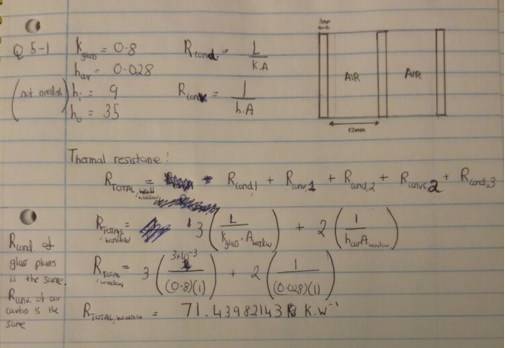 Q 5-1
k glass = 0.8
h air = 0.028
hi = 9
ho = 35
R cond = L / K.A
R conv = 1 / h.A
AIR
AIR
12mm
Thermal resistance:
R TOTAL, window = R cond,1 + R conv,1 + R cond,2 + R conv,2 + R cond,3
R TOTAL, window = 3 ( L / k glass . A window ) + 2 ( 1 / h air A window )
R cond of
glass planes
is the same.
R conv of air
cavities is the
same
R TOTAL, window = 3 ( 3x10^-3 / (0.8)(1) ) + 2 ( 1 / (0.028)(1) )
R TOTAL, window = 71.43982143 K.W^-1